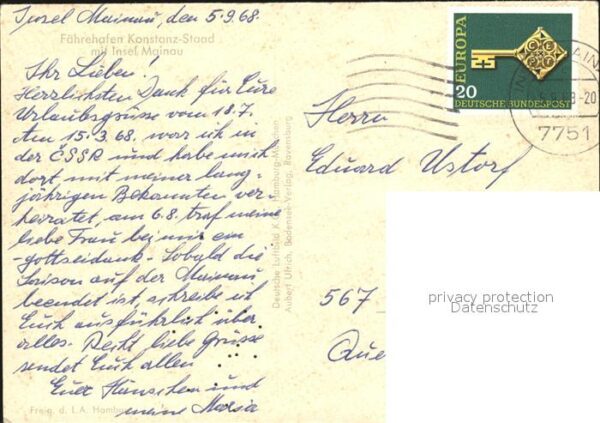 Insel Mainau, den 5.9.68.
Fährehafen Konstanz-Staad
mit Insel Mainau
Ihr Lieben!
Herzlichsten Dank für Eure
Urlaubsgrüsse vom 18.7.
Am 15.3.68. war ich in
der ČSSR und habe mich
dort mit meiner lang-
jährigen Bekannten ver-
heiratet, am 6.8. traf meine
liebe Frau bei mir ein
-gottseidank- Sobald die
Saison auf der Mainau
beendet ist, schreibe ich
Euch ausführlich über
alles. Recht liebe Grüsse
sendet Euch allen
Euer Hänschen und
meine Maria
Freig. d. L.A. Hamburg
Deutsche Luftbild K.G. Hamburg-München
Aubert Ulrich, Bodensee-Verlag, Ravensburg
EUROPA
CEPT
20
DEUTSCHE BUNDESPOST
-20
7751
Herrn
Eduard Ustorf
567
Que
privacy protection
Datenschutz